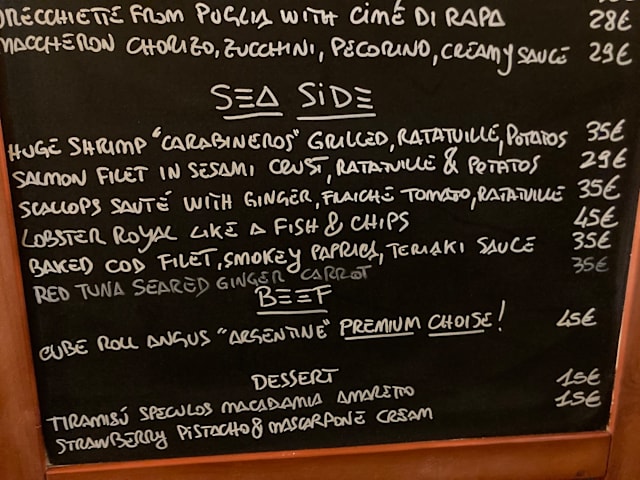 ORECCHIETTE FROM PUGLIA WITH CIMÉ DI RAPA 28€
MACCHERON CHORIZO, ZUCCHINI, PECORINO, CREAMY SAUCE 29€
SEA SIDE
HUGE SHRIMP "CARABINEROS" GRILLED, RATATUILLE, POTATOS 35€
SALMON FILET IN SESAMI CRUST, RATATUILLE & POTATOS 29€
SCALLOPS SAUTÉ WITH GINGER, FLAICHE TOMATO, RATATUILLE 35€
LOBSTER ROYAL LIKE A FISH & CHIPS 45€
BAKED COD FILET, SMOKEY PAPRICA, TERIAKI SAUCE 35€
RED TUNA SEARED GINGER CARROT 35€
BEEF
CUBE ROLL ANGUS "ARGENTINE" PREMIUM CHOISE! 45€
DESSERT
TIRAMISÚ SPECULOS MACADAMIA AMARETTO 15€
STRAWBERRY PISTACHO & MASCARPONE CREAM 15€